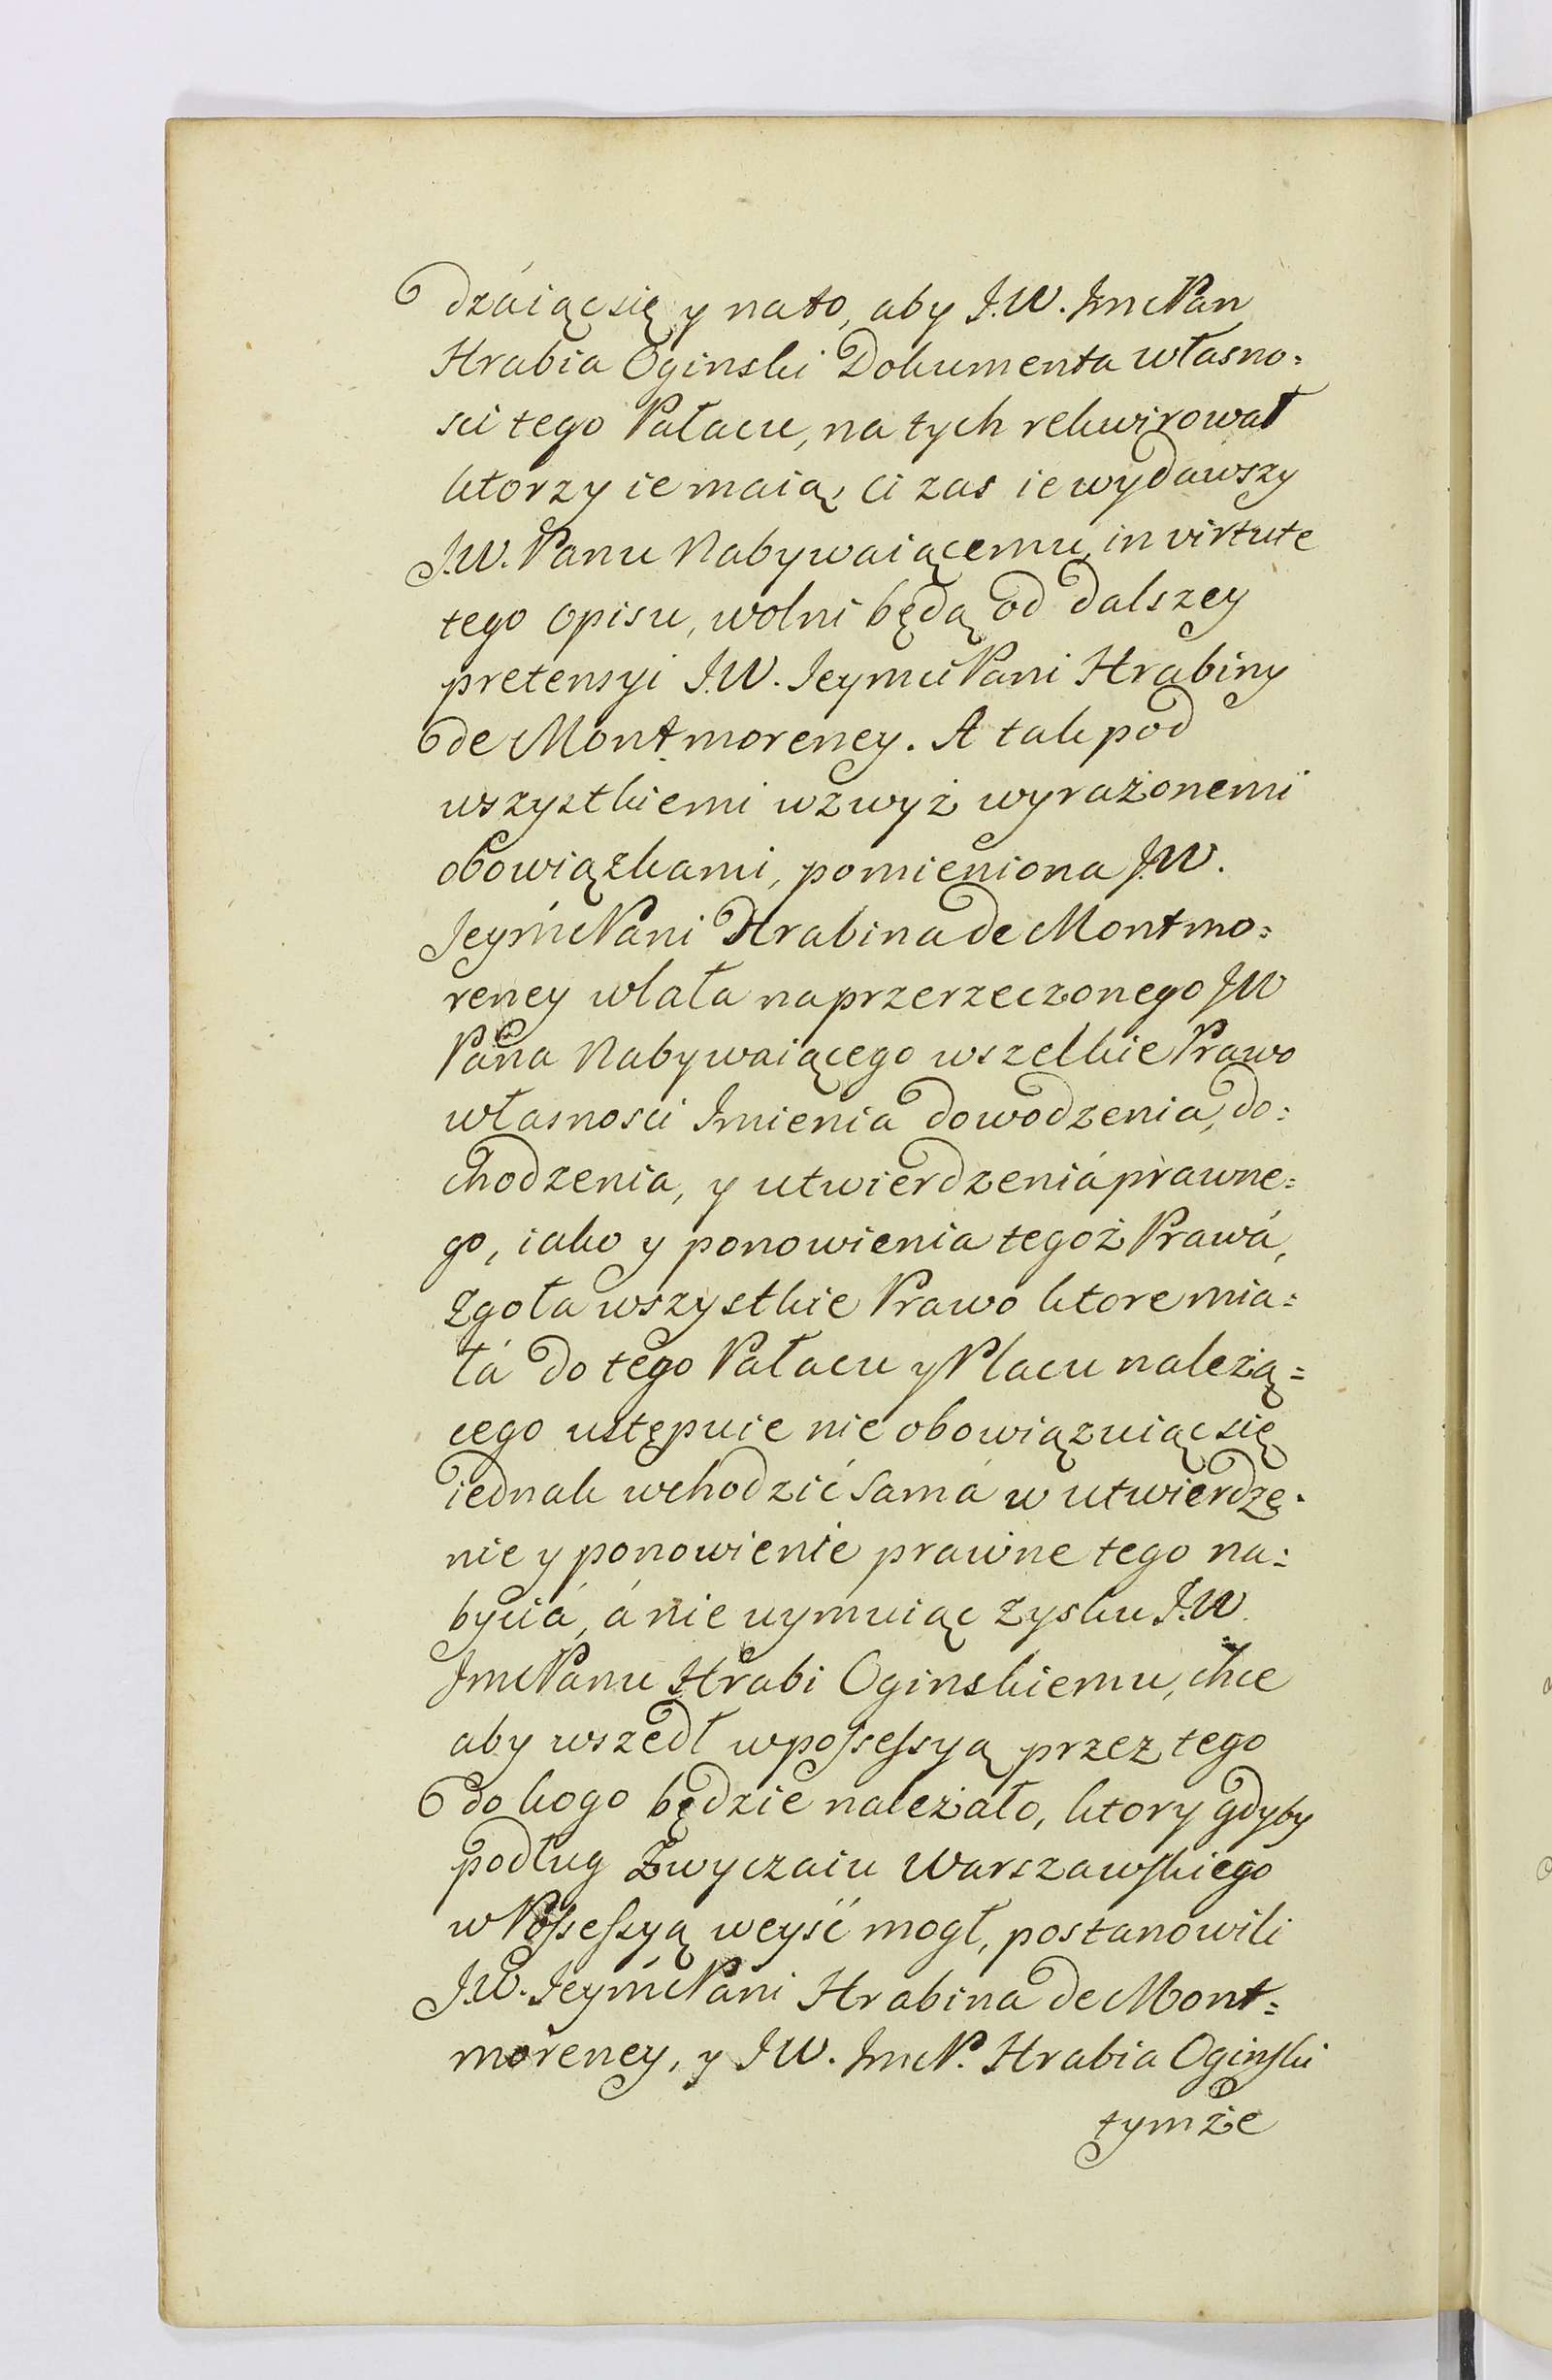 dzáiąc się y na to, aby J.W. Jmc Pan
Hrabia Oginski Dokumenta własno=
sci tego Pałacu, na tych rekwirował
ktorzy ie maią, ci zas ie wydawszy
J.W. Panu Nabywaiącemu, in virtute
tego opisu, wolni będą od dalszey
pretensyi J.W. Jeymci Pani Hrabiny
de Montmorency. A tak pod
wszystkiemi wzwyż wyrażonemi
obowiązkami, pomieniona J.W.
Jeymć Pani Hrabina de Montmo=
rency wlała na przerzeczonego JW
Pana Nabywaiącego wszelkie Prawo
własnosci Jmienia dowodzenia, do=
chodzenia, y utwierdzeniá prawne=
go, iako y ponowienia tegoż Prawá,
zgoła wszystkie Prawo ktore mia=
łá do tego Pałacu y Placu należą=
cego ustępuie nie obowiązuiąc się
iednak wchodzić samá w utwierdzę=
nie y ponowienie prawne tego na=
byciá, á nie uymuiąc zysku J.W.
Jmc Panu Hrabi Oginskiemu, chce
aby wszedł w possessyą przez tego
do kogo będzie należało, ktory gdyby
podług Zwyczaiu Warszawskiego
w Possessyą weyść mogł, postanowili
J.W. Jeymć Pani Hrabina de Mont=
morency, y JW. Jmc P. Hrabia Oginski
tymże